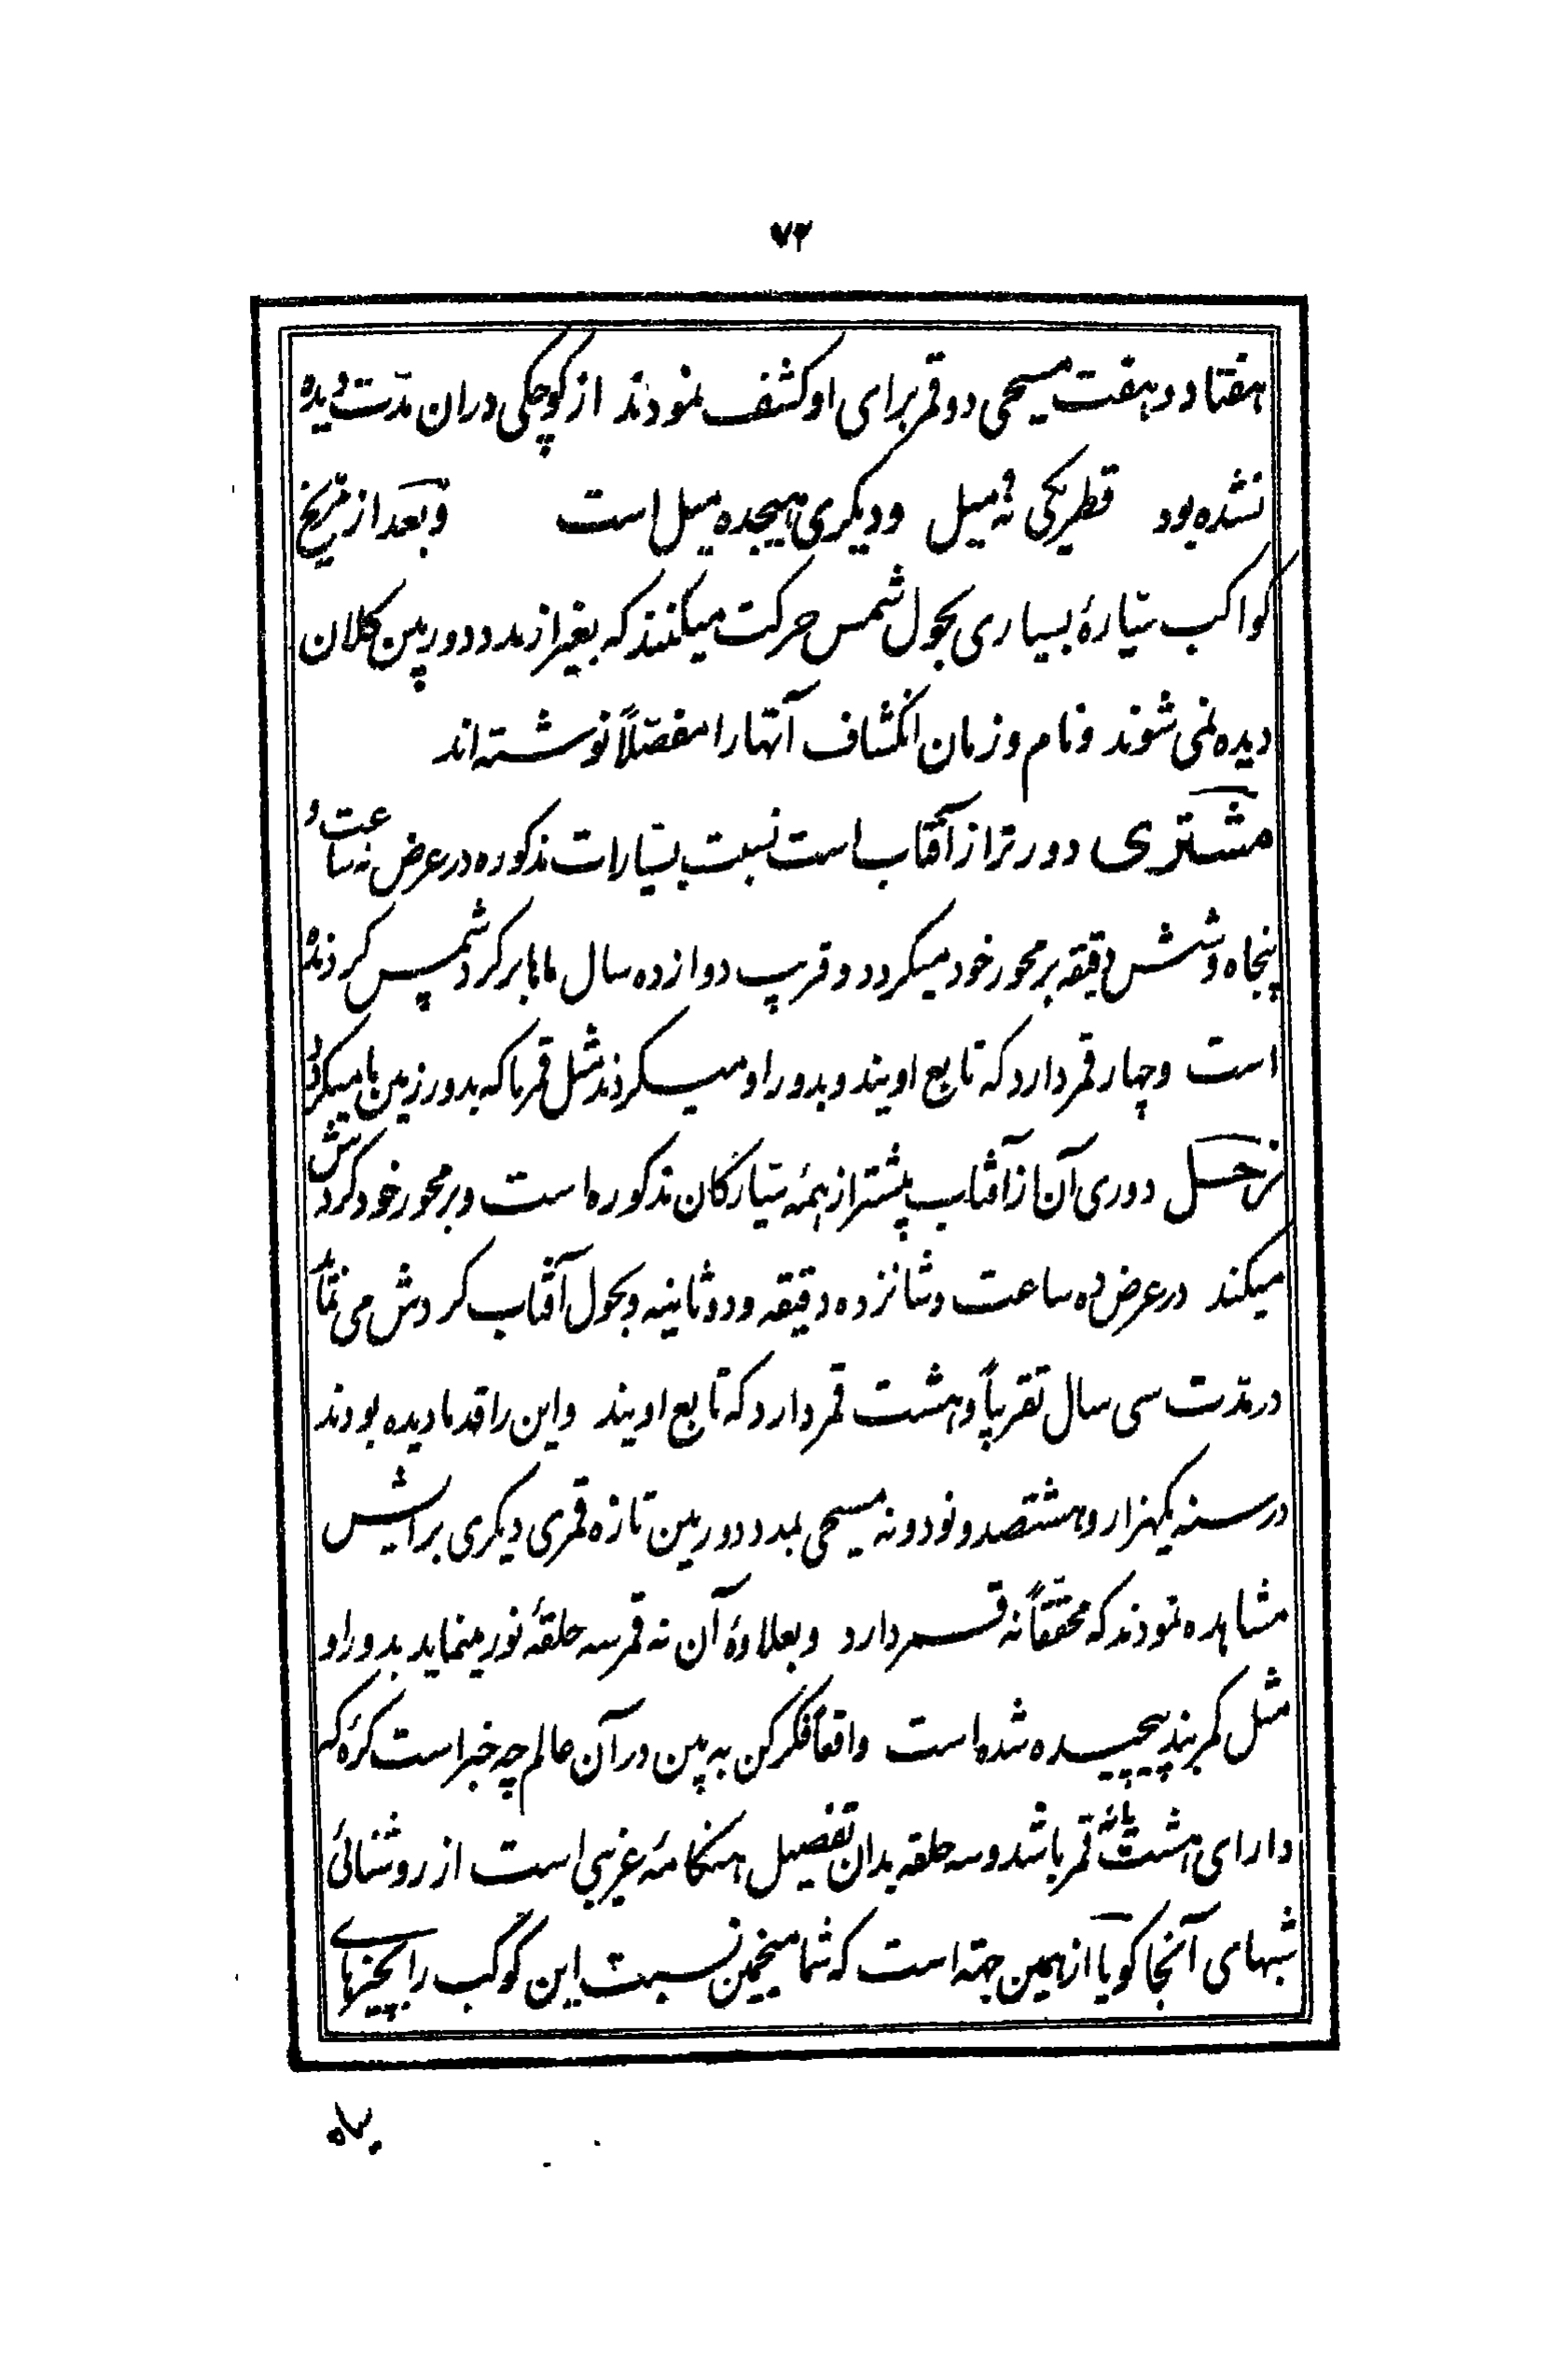 ۷۲
هفتاد و هفت مسیحی دو قمر برای او کشف نمودند از کوچکی دران مدّت دیده
نشده بود قطر یکی نُه میل و دیکری هیجده میل است و بعد از مرّیخ
کواکب سیّارهٔ بسیاری بحول شمس حرکت میکنند که بغیر از مدد دوربین کلان
دیده نمی شوند و نام و زمان انکشاف آنها را مفصّلاً نوشته اند
مشتری دورتر از آفتاب است نسبت بسیّارات مذکوره در عرض نه ساعت و
پنجاه و شش دقیقه بر محور خود میکردد و قریب دوازده سال ماها بر کرد شمس کردنده
است و چهار قمر دارد که تابع اویند و بدور او میکردند مثل قمر ما که بدور زمین ما میکردد
زحل دوری آن از آفتاب بیشتر از همهٔ سیّارکان مذکوره است و بر محور خود کردش
میکند در عرض ده ساعت و شانزده دقیقه و دو ثانیه و بحول آفتاب کردش می نماید
در مدّت سی سال تقریباً و هشت قمر دارد که تابع اویند و این را قدما دیده بودند
در سنه یکهزار و هشتصد و نود و نه مسیحی بمدد دوربین تازه قمری دیکری برایش
مشاهده نمودند که محقّقاً نه قمر دارد و بعلاوهٔ آن نه قمر سه حلقهٔ نور مینماید بدور او
مثل کمربند پیچیده شده است واقعاً فکر کن به بین در آن عالم چه خبر است کرهٔ که
دارای هشت یا نُه قمر باشد و سه حلقه بدان تفصیل هنکامهٔ غریبی است از روشنائی
شبهای آنجا کویا از همین جهته است که شما منجّمین نسبت این کوکب را بچیزهای
بد